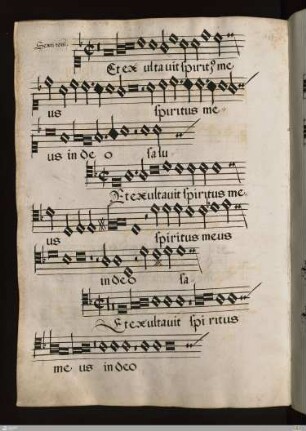 Et ex ultavit spiritꝰ me
us spiritus me-
us in de o salu
Et exultavit spiritus me
us spiritus meus
in deo sa-
Et exultavit spi ritus
me- us in deo